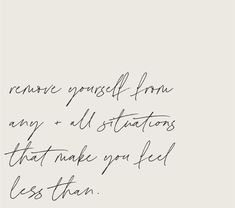 remove yourself from
any + all situations
that make you feel
less than.